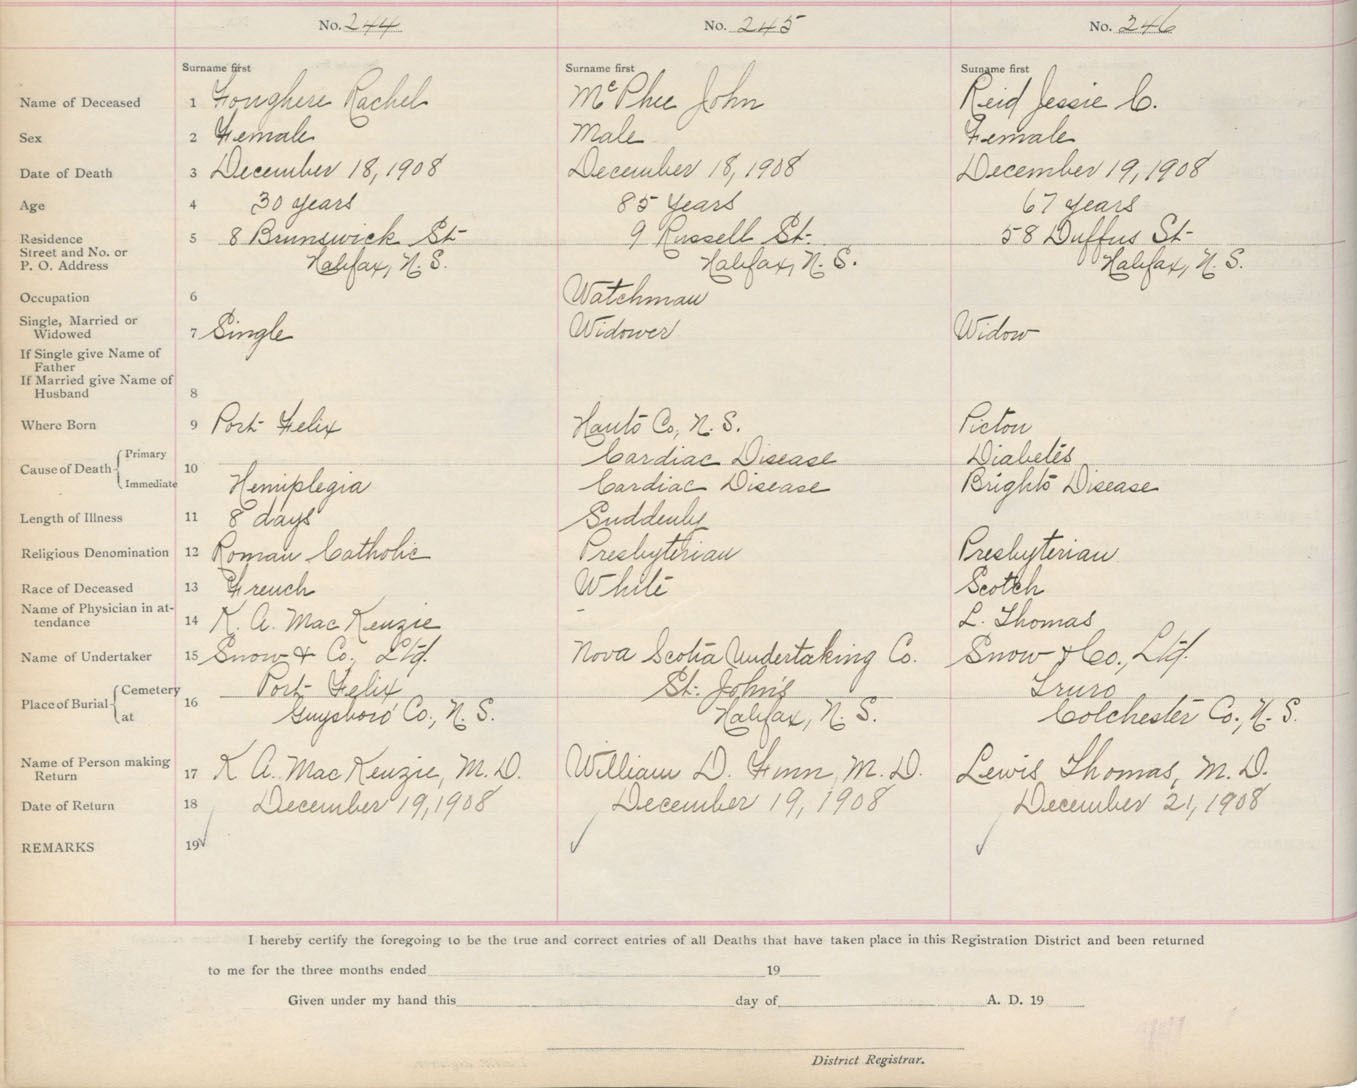 No. 244 No. 245 No. 246
Surname first Surname first Surname first
Name of Deceased 1 Foughere Rachel McPhee John Reid Jessie C.
Sex 2 Female Male Female
Date of Death 3 December 18, 1908 December 18, 1908 December 19, 1908
Age 4 30 years 85 years 67 years
Residence 5 8 Brunswick St- 9 Russell St. 58 Duffus St-
Street and No. or
P. O. Address Halifax, N. S. Halifax, N. S. Halifax, N. S.
Occupation 6 Watchman
Single, Married or
Widowed 7 Single Widower Widow
If Single give Name of
Father
If Married give Name of
Husband 8
Where Born 9 Port Felix Hants Co, N. S. Pictou
Primary Cardiac Disease Diabetes
Cause of Death 10
Immediate Hemiplegia Cardiac Disease Brights Disease
Length of Illness 11 8 days Suddenly
Religious Denomination 12 Roman Catholic Presbyterian Presbyterian
Race of Deceased 13 French White Scotch
Name of Physician in at-
tendance 14 K. A. MacKenzie - L. Thomas
Name of Undertaker 15 Snow & Co., Ltd. Nova Scotia Undertaking Co. Snow & Co., Ltd.
Cemetery Port Felix St. John's Truro
Place of Burial 16
at Guysboro Co., N. S. Halifax, N. S. Colchester Co., N. S.
Name of Person making
Return 17 K A. MacKenzie, M. D. William D. Finn, M. D. Lewis Thomas, M. D.
Date of Return 18 December 19, 1908 December 19, 1908 December 21, 1908
REMARKS 19
I hereby certify the foregoing to be the true and correct entries of all Deaths that have taken place in this Registration District and been returned
to me for the three months ended 19
Given under my hand this day of A. D. 19
District Registrar.